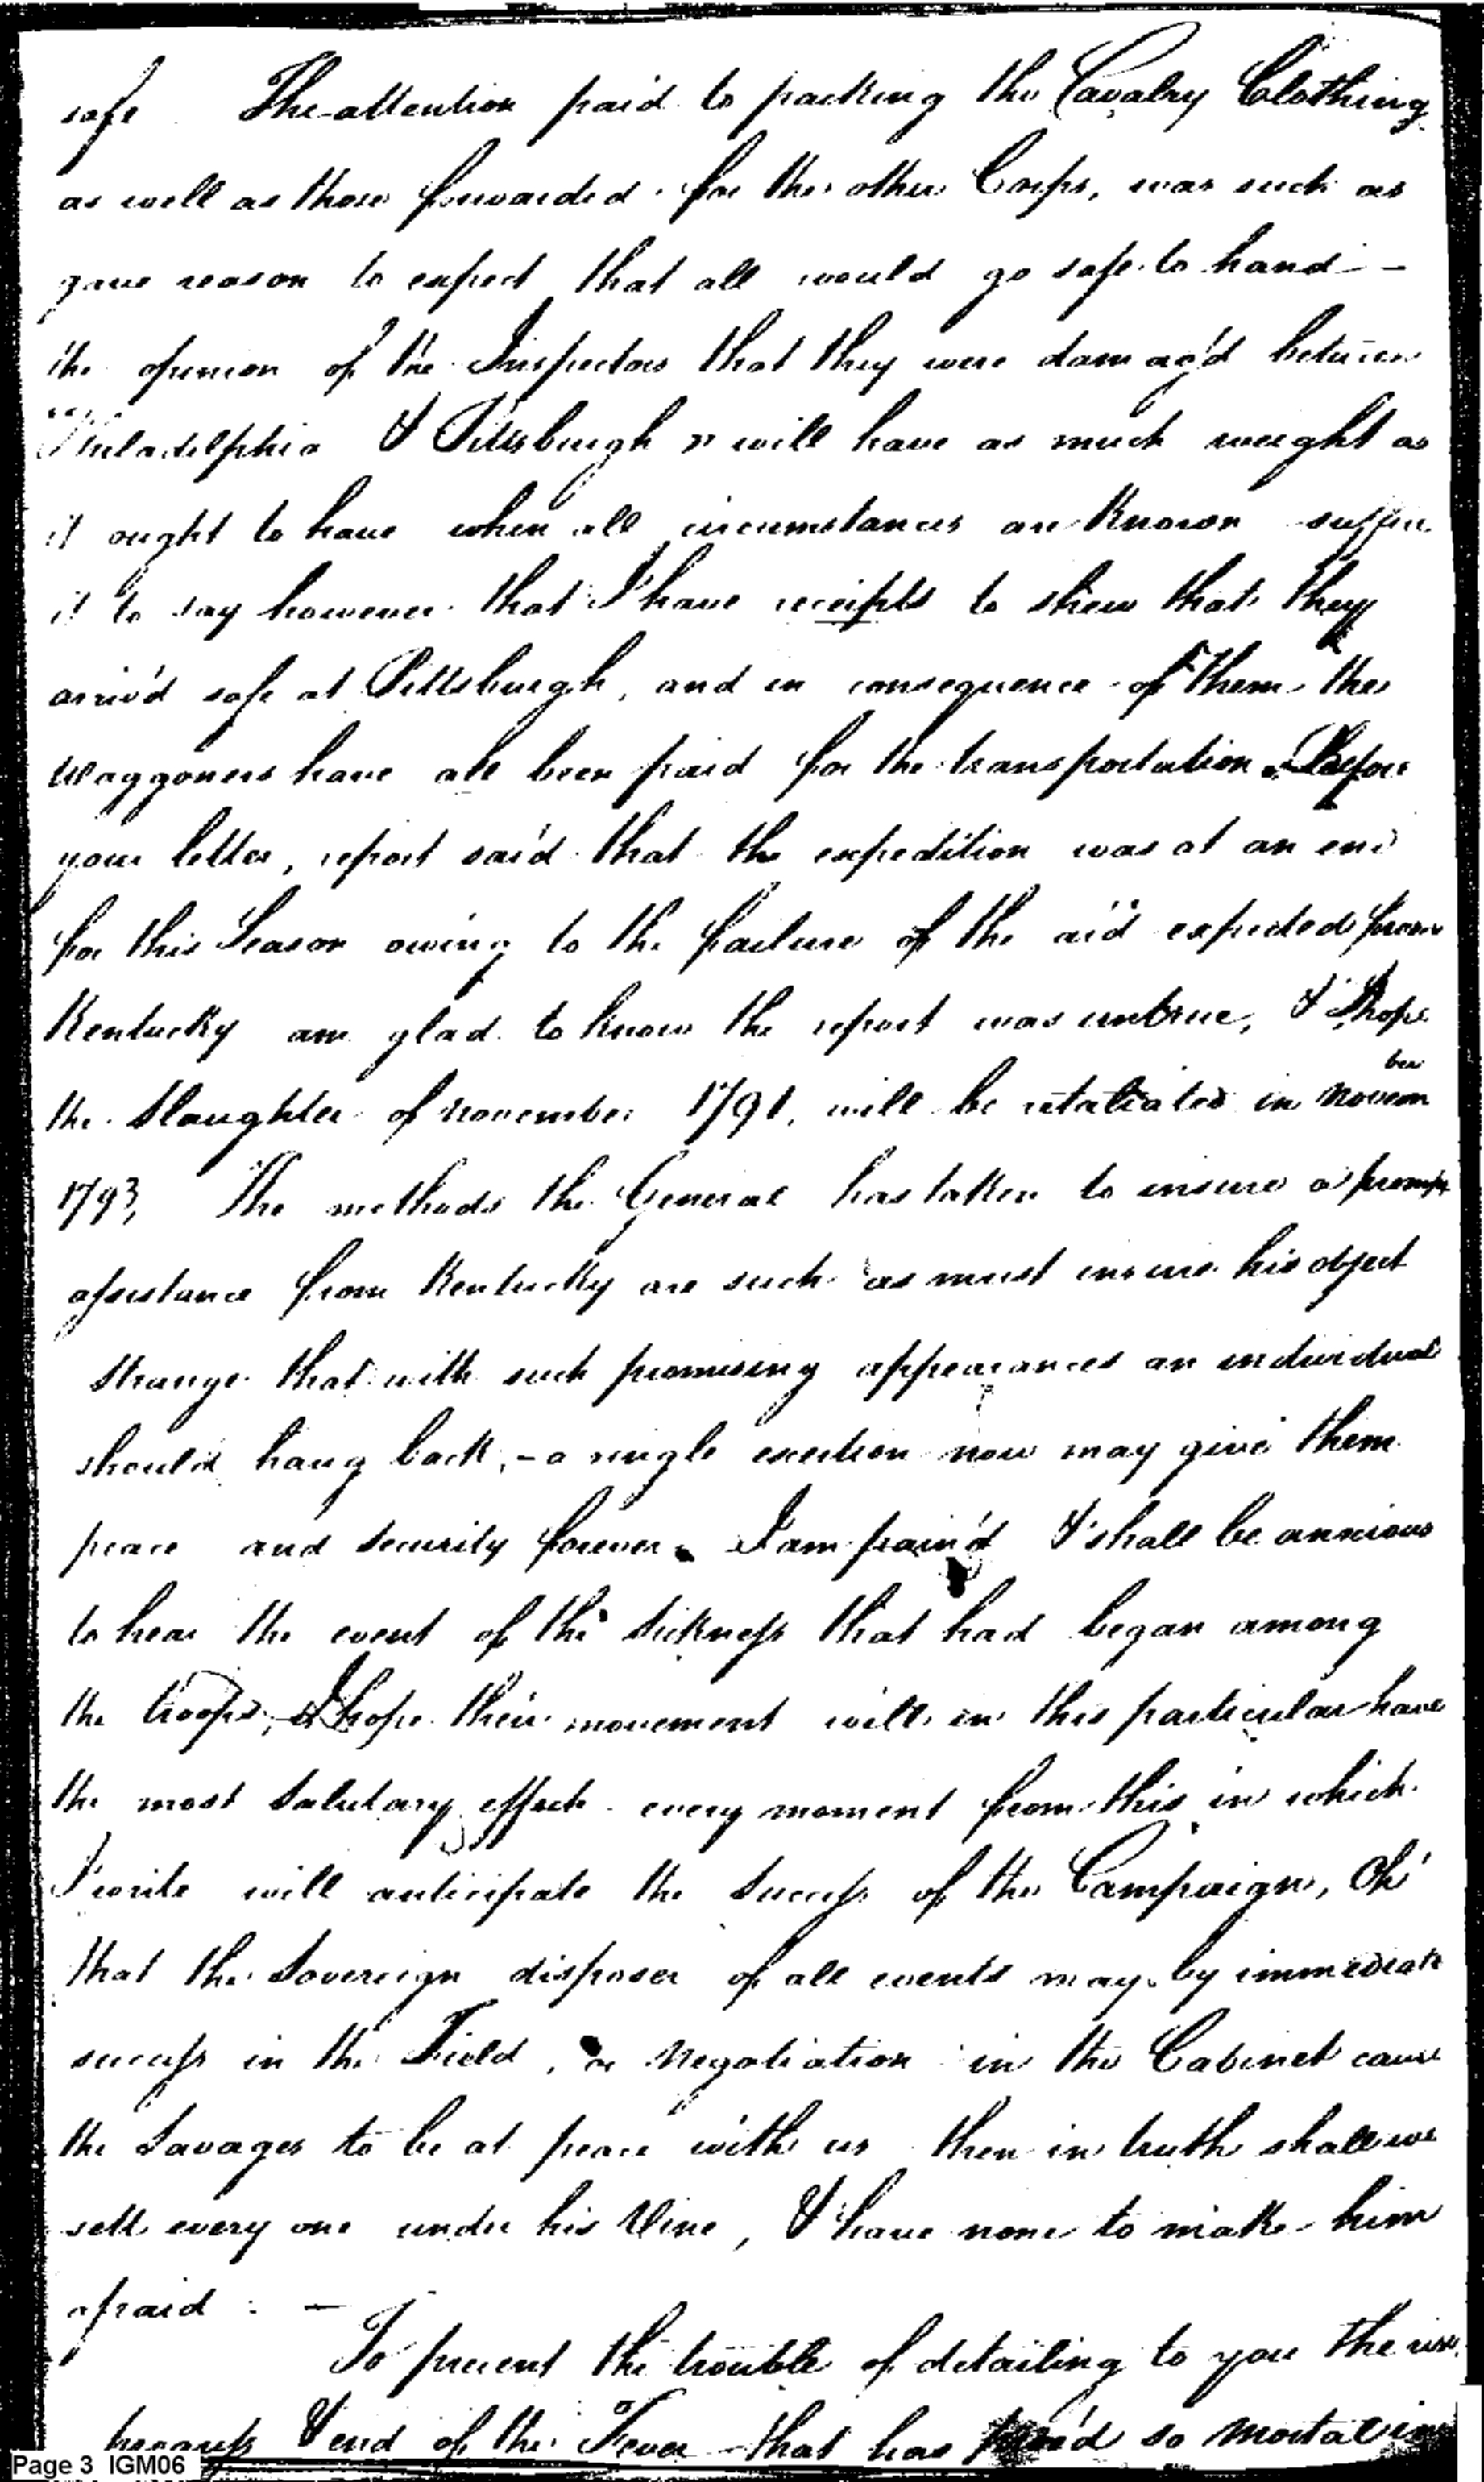 safe The attention paid to packing the Cavalry Clothing
as well as those forwarded for the other Corps, was such as
gave reason to expect that all would go safe to hand -
the opinion of the Inspectors that they were damag'd between
Philadelphia & Pittsburgh " will have as much weight as
it ought to have when all circumstances are known suffice
it to say however that I have receipts to shew that they
arriv'd safe at Pittsburgh, and in consequence of them the
Waggoners have all been paid for the transportation. Before
your letter, report said that the expedition was at an end
for this Season owing to the failure of the aid expected from
Kentucky am glad to know the report was untrue, & I hope
the Slaughter of November 1791, will be retaliated in Novem
ber
1793, The methods the General has taken to insure a prompt
assistance from Kentucky are such as must insure his object
strange that with such promising appearances an individual
should hang back, - a single exertion now may give them
peace and security forever. I am pain'd & shall be anxious
to hear the event of the sickness that had began among
the troops, & I hope their movement will in this particular have
the most Salutary effect every moment from this in which
I write will anticipate the Success of the Campaign, Oh
that the Sovereign disposer of all events may by immediate
success in the Field, or Negotiation in the Cabinet cause
the Savages to be at peace with us then in truth shall we
sett every one under his Vine, & have none to make him
afraid : -
To prevent the trouble of detailing to you the rise
progress & end of the Fever that has prov'd so Mortal in
Page 3 IGM06